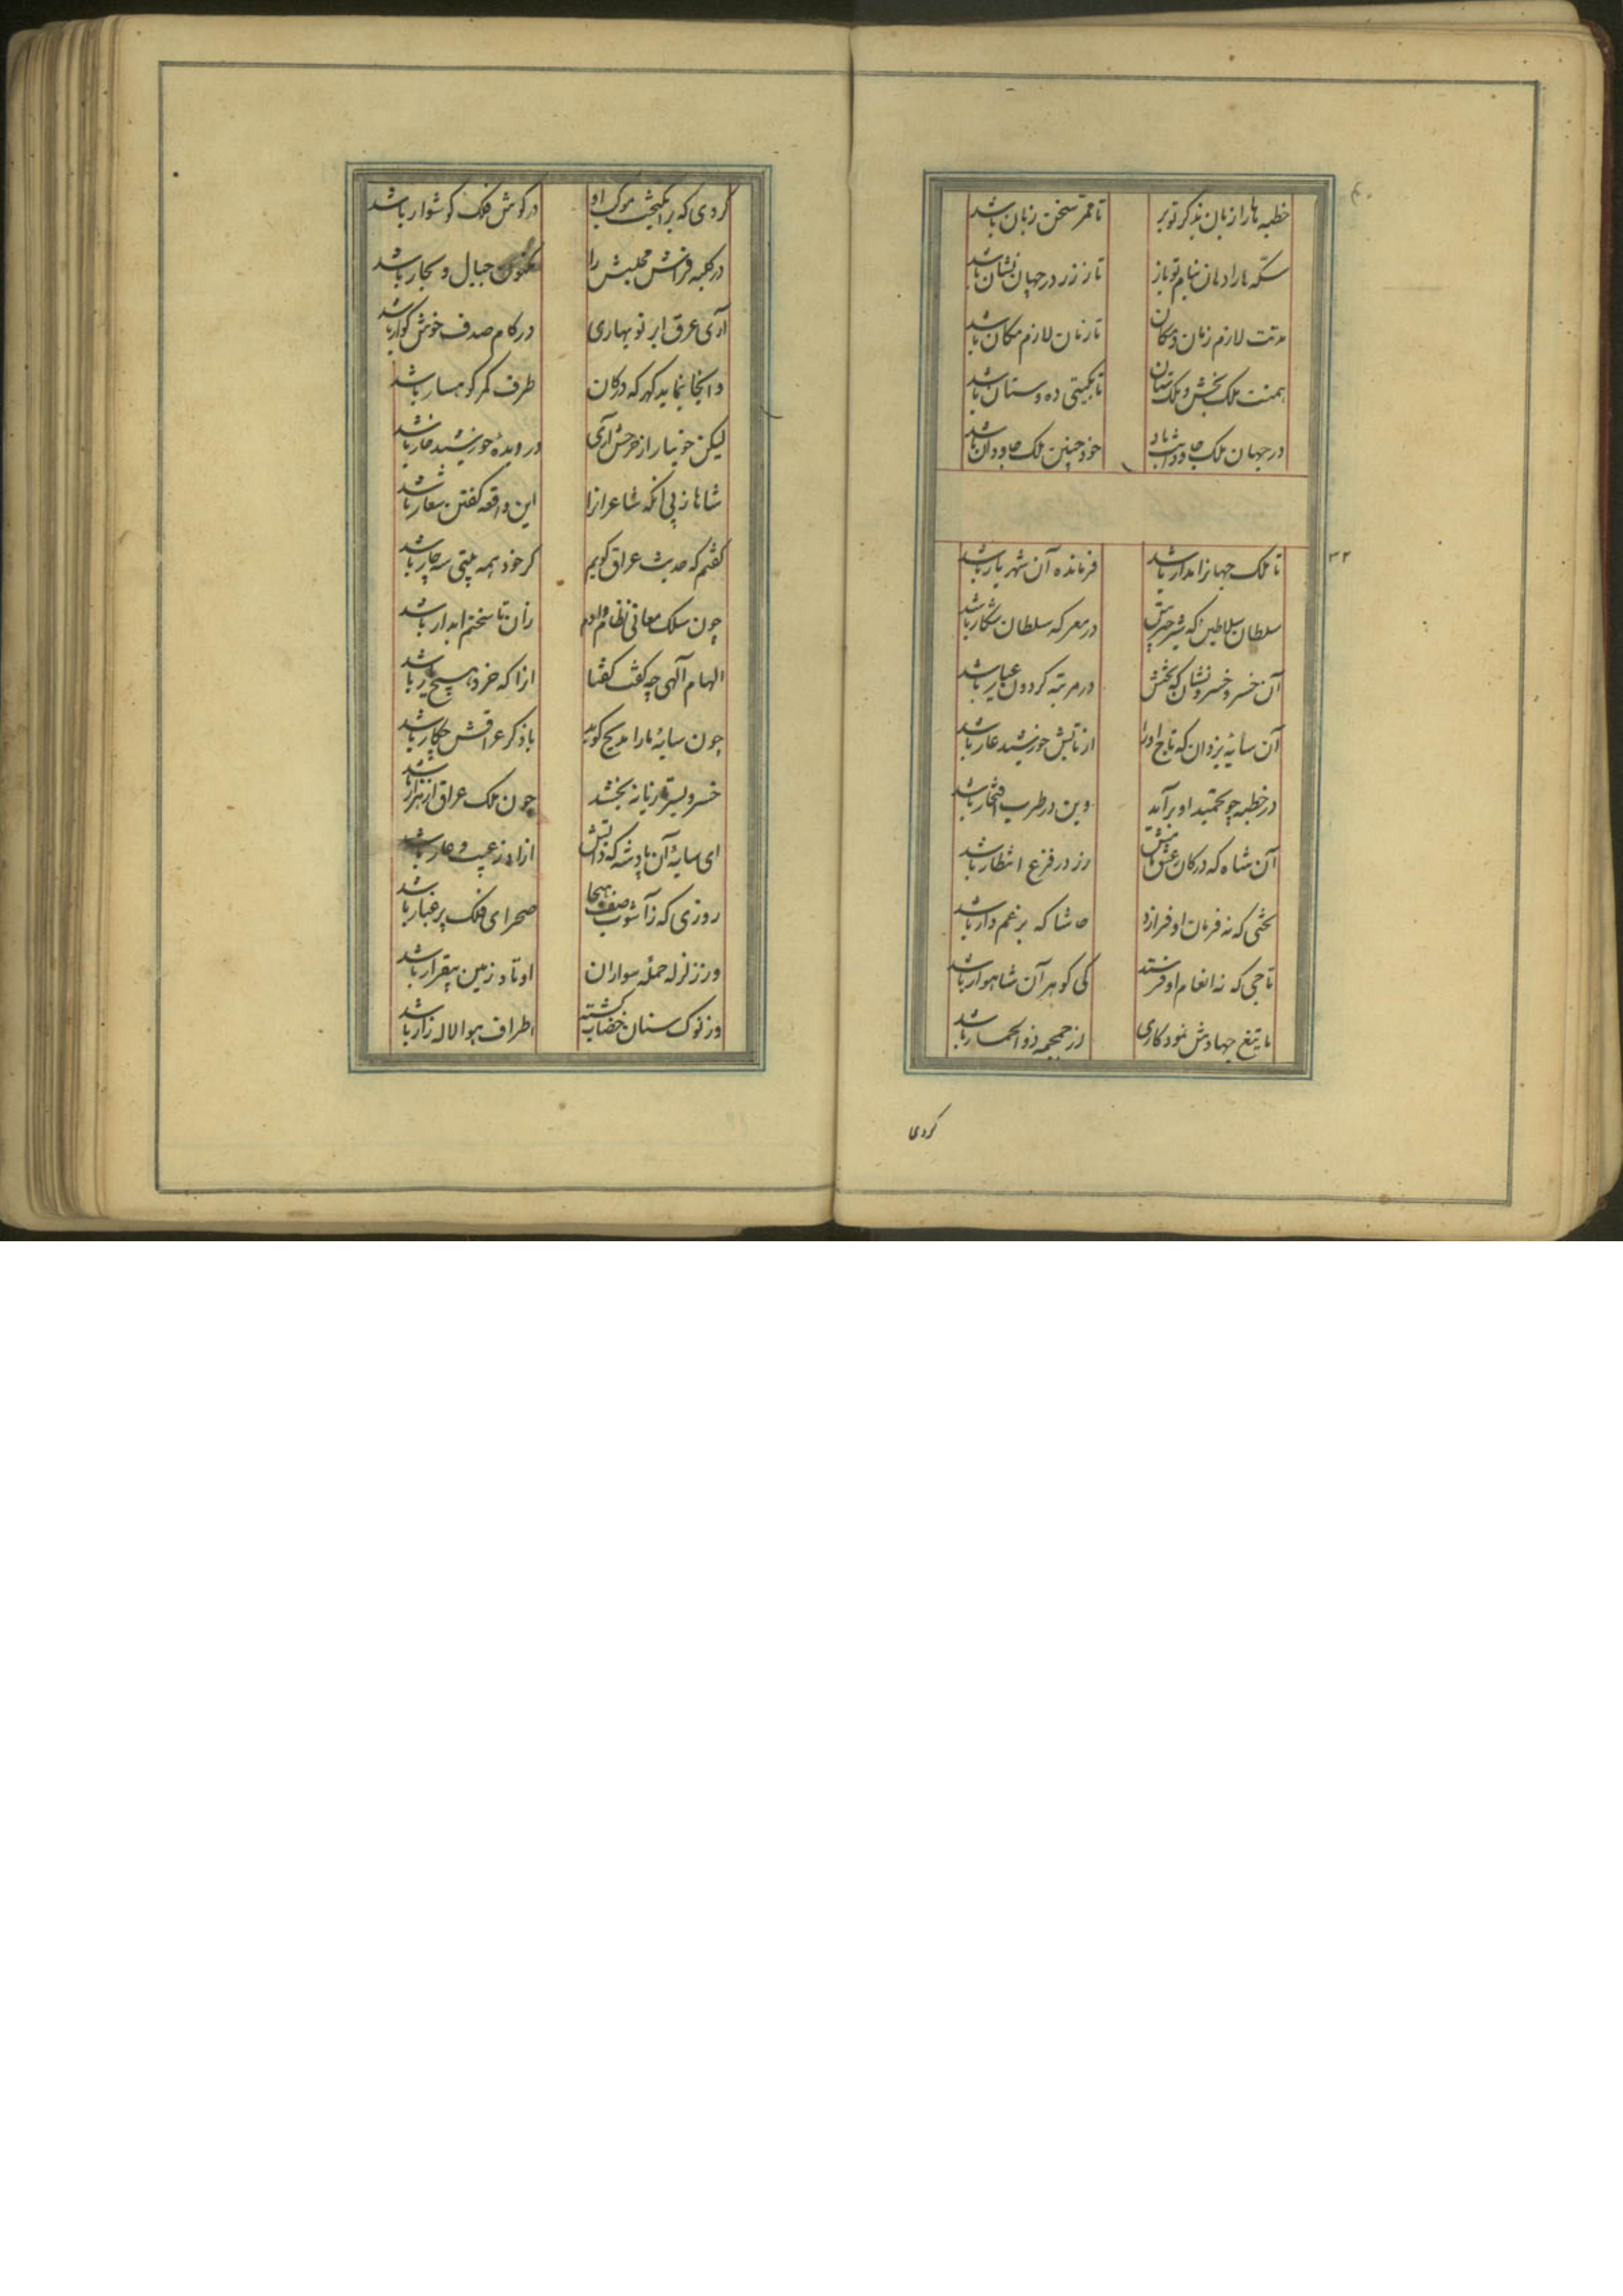 خطبه ها را زبان بذکر تو بر تا ممر سخن زبان باشد
سکه ها را دهان بنام تو باز تا ز زر در جهان نشان باشد
مدتت لازم زمان و مکان تا زمان لازم مکان باشد
همتت ملک بخش و ملک ستان تا بگیتی ده و ستان باشد
در جهان ملک جاودانت باد خود چنین ملک جاودان باشد
۳۲
تا ملک جهانرا مدار باشد فرمانده آن شهریار باشد
سلطان سلاطین که شیر چترش در معرکه سلطان شکار باشد
آن خسرو خسرونشان که بختش در مرتبه گردون عیار باشد
آن سایه یزدان که تاج او را از تابش خورشید عار باشد
در خطبه چو تحمید او برآید وین در طرب افتخار باشد
آن شاه که در کان ز عشق نامش زر در فزع انتظار باشد
تختی که نه فرمان او فرازد حاشا که بر غم دار باشد
تاجی که نه انعام او فرستد کی گوهر آن شاهوار باشد
با تیغ جهادش نمود کاری از جمجمه ذوالخمار باشد
گردی
گردی که برانگیخت موکب او در گوش فلک گوشوار باشد
در کلبه فراش مجلسش را مکنون جبال و بحار باشد
آری عرق ابر نوبهاری در کام صدف خوش گوار باشد
وانجا نماید گهر که در کان طرف کمر کوهسار باشد
لیکن چو بیاراید از خوشی آری در دیده خورشید خار باشد
شاها ز پی آنکه شاعران را این واقعه گفتن شعار باشد
گفتم که حدیث عراق گویم گر خود همه بیتی سه چار باشد
چون سلک معانی نظام دادم زان تا سخنم آبدار باشد
الهام آلهی چه گفت گفتا آنرا که خرد هیچ یار باشد
چون سایه ما را مدیح گوید با ذکر عراقش چکار باشد
خسرو بسر تازیانه بخشد چون ملک عراق ار هزار باشد
ای سایه آن پادشه که ذاتش آزاد ز عیب و عار باشد
روزی که ز آشوب صف هیجا صحرای فلک پر غبار باشد
وز زلزله حمله سواران اوتاد زمین بیقرار باشد
وز نوک سنان خضاب گشته اطراف هوا لاله زار باشد